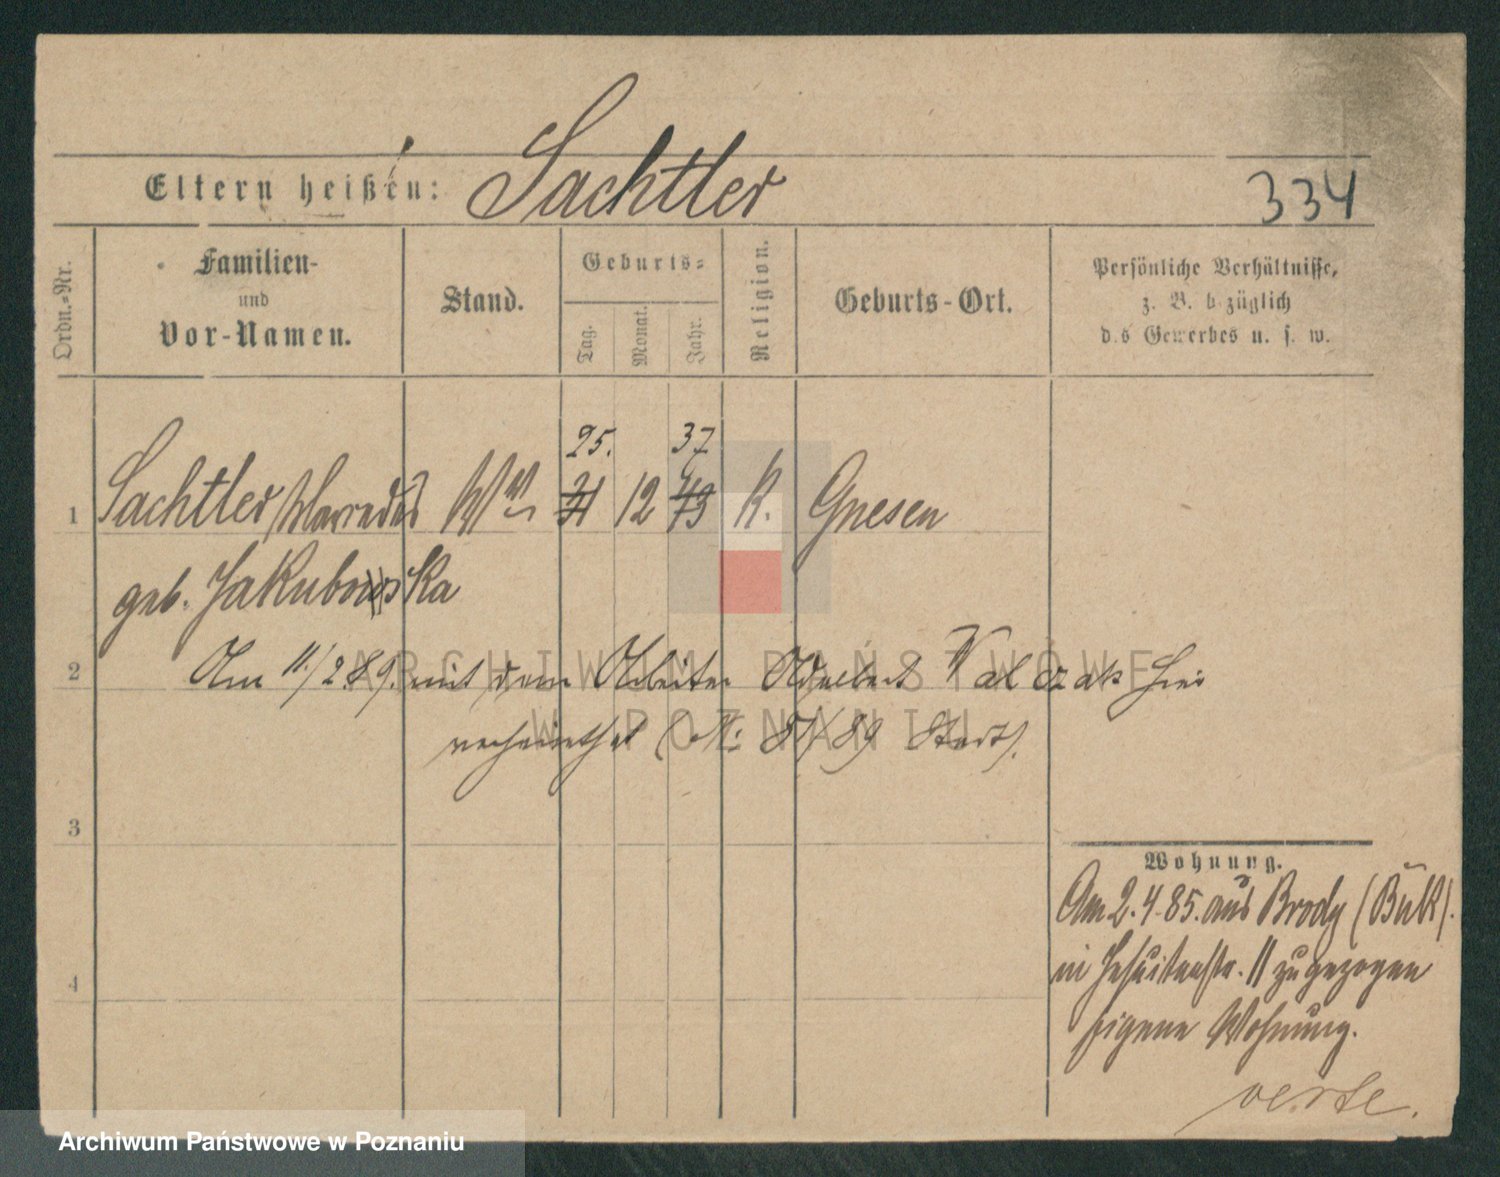 Eltern heißen: Sachtler
334
Ordn.-Nr.
Familien-
und
Vor-Namen.
Stand.
Geburts-
Tag.
Monat.
Jahr.
Religion.
Geburts-Ort.
Persönliche Verhältnisse,
z. B. bezüglich
des Gewerbes u. s. w.
25. 37
1 Sachtler Wwe 31 12 43 K. Gnesen
geb. Jakubowska
ARCHIWUM PAŃSTWOWE
2 Am 11./2.89. mit dem Arbeiter Adalbert Valczak hier
W POZNANIU
verheirathet (Nr. 87/89 Stadt).
3
Wohnung.
Am 2.4.85. aus Brody (Buk).
4
in Jesuitenstr. 11 zugezogen
eigene Wohnung.
verte.
Archiwum Państwowe w Poznaniu